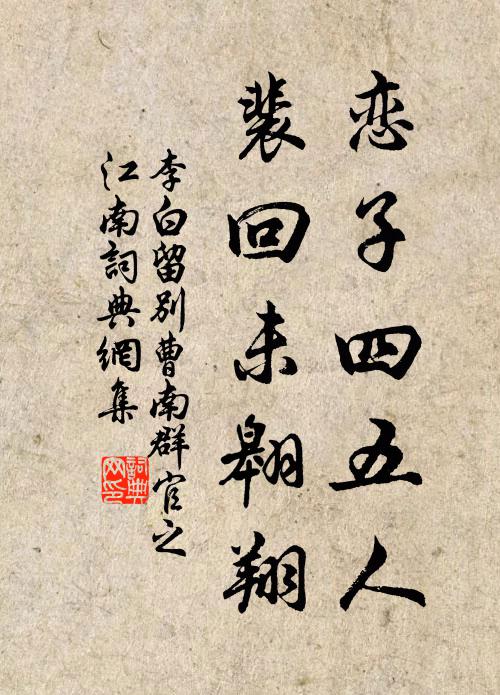 恋子四五人
裴回未翱翔
李白留别曹南群官之
江南詞典網集
詞典
网印